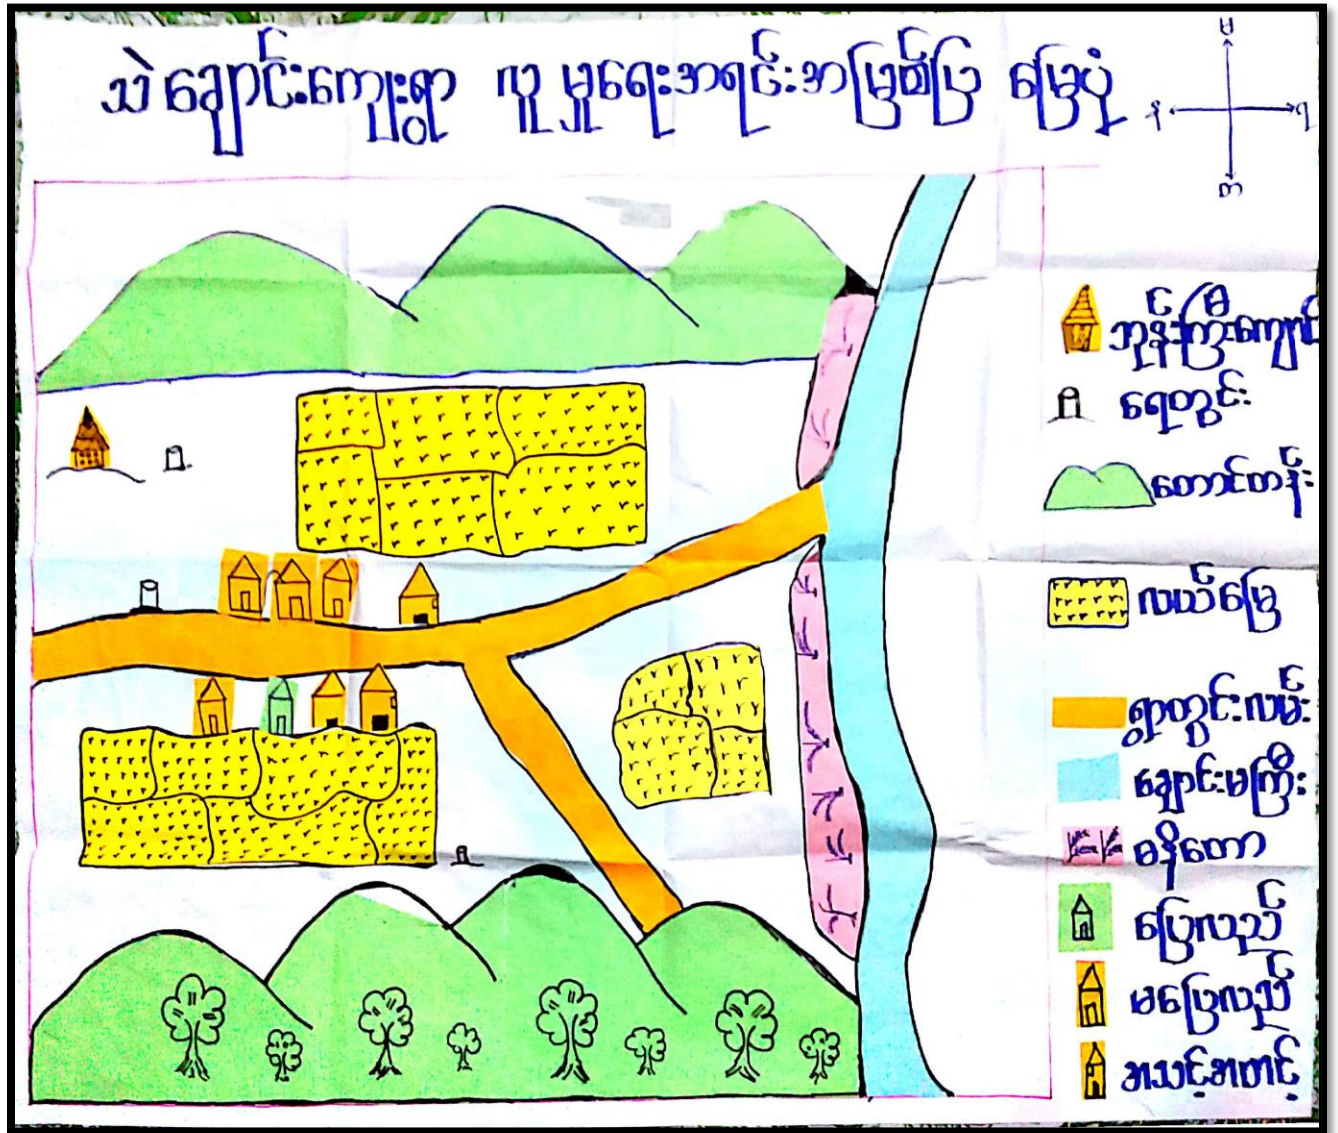 သဲချောင်းကျေးရွာ လူမှုရေးအရင်းအမြစ်ပြ မြေပုံ
မ
န
ရ
တ
ဘုန်းကြီးကျောင်
ရေတွင်း
တောင်တန်း
လယ်မြေ
ရွာတွင်းလမ်း
ချောင်းမကြီး
ဓနိတော
ပြေလည်
မပြေလည်
အသင့်အတင့်